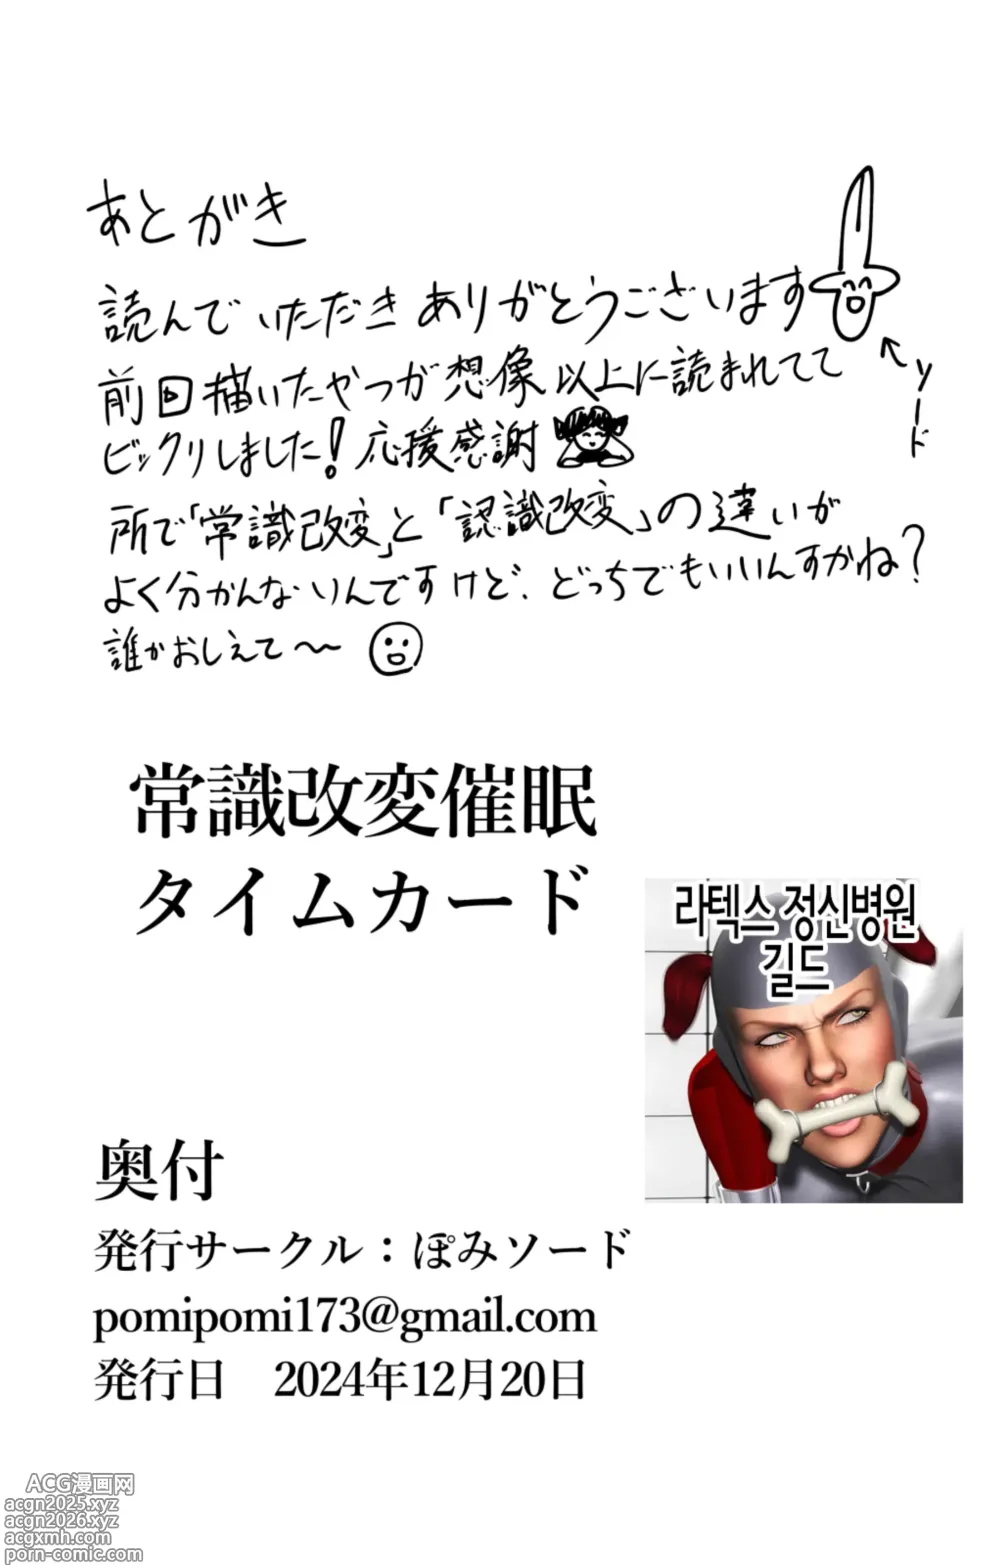 あとがき
読んでいただきありがとうございます
ソード
前回描いたやつが想像以上に読まれてて
ビックリしました!応援感謝
所で「常識改変」と「認識改変」の違いが
よく分かんないんですけど、どっちでもいいんすかね?
誰かおしえて〜〜
常識改変催眠
タイムカード
라텍스 정신병원
길드
奥付
発行サークル:ぽみソード
pomipomi173@gmail.com
発行日 2024年12月20日
ACG漫画网
acgn2025.xyz
acgn2026.xyz
acgxmh.com
porn-comic.com